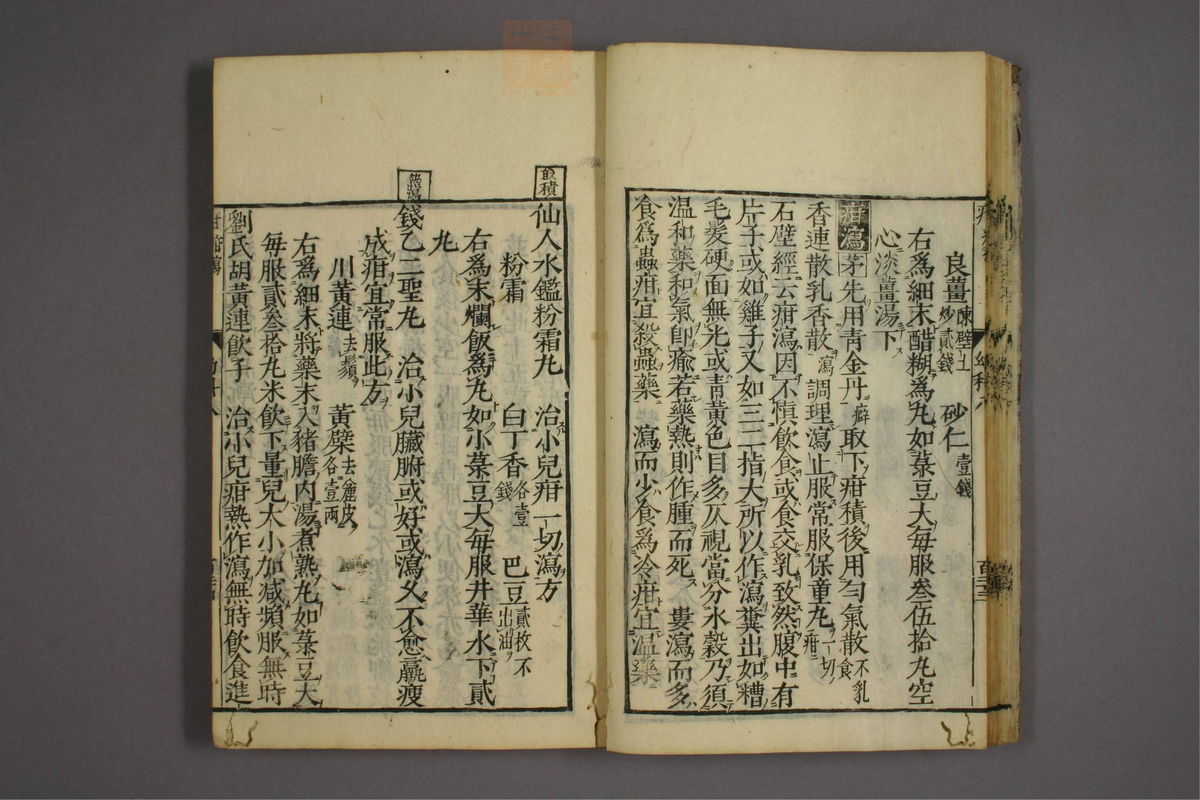 良薑陳壁土炒貳錢 砂仁壹錢
右爲細末醋糊爲丸如菉豆大每服叄伍拾丸空
心淡薑湯下
疳瀉茅先用靑金丹癖取下疳積後用勻氣散不乳食
香連散乳香散瀉調理瀉止服常服保童丸一切疳
石壁經云疳瀉因不慎飮食或食交乳致然腹中有
片子或如雞子又如三二指大所以作瀉糞出如糟
毛髮硬面無光或靑黃色目多仄視當分水穀乃須
温和藥和氣卽瘉若藥熱則作腫而死 婁瀉而多
食爲蟲疳宜殺蟲藥 瀉而少食爲冷疳宜温藥
取積
仙人水鑑粉霜丸 治小兒疳一切瀉方
粉霜 白丁香各壹錢 巴豆貳枚不出油
右爲末爛飯爲丸如小菉豆大每服井華水下貳
丸
熱瀉
錢乙二聖丸 治小兒臟腑或好或瀉久不愈羸瘦
成疳宜常服此方
川黃連去鬚 黃檗去麤皮各壹兩
右爲細末將藥末入猪膽内湯煮熟丸如菉豆大
每服貳叄拾丸米飮下量兒大小加減頻服無時
劉氏胡黃連飮子 治小兒疳熱作瀉無時飮食進